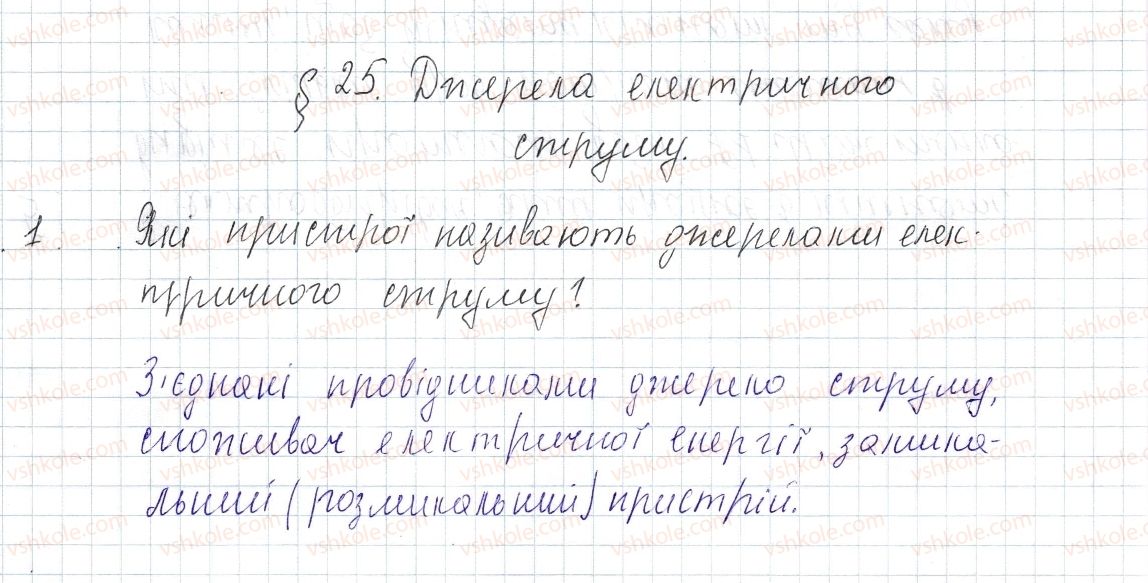 § 25. Джерела електричного
струму.
1. Які пристрої називають джерелами елек-
тричного струму?
З'єднані провідниками джерело струму,
споживач електричної енергії, замика-
льний (розмикальний) пристрій.